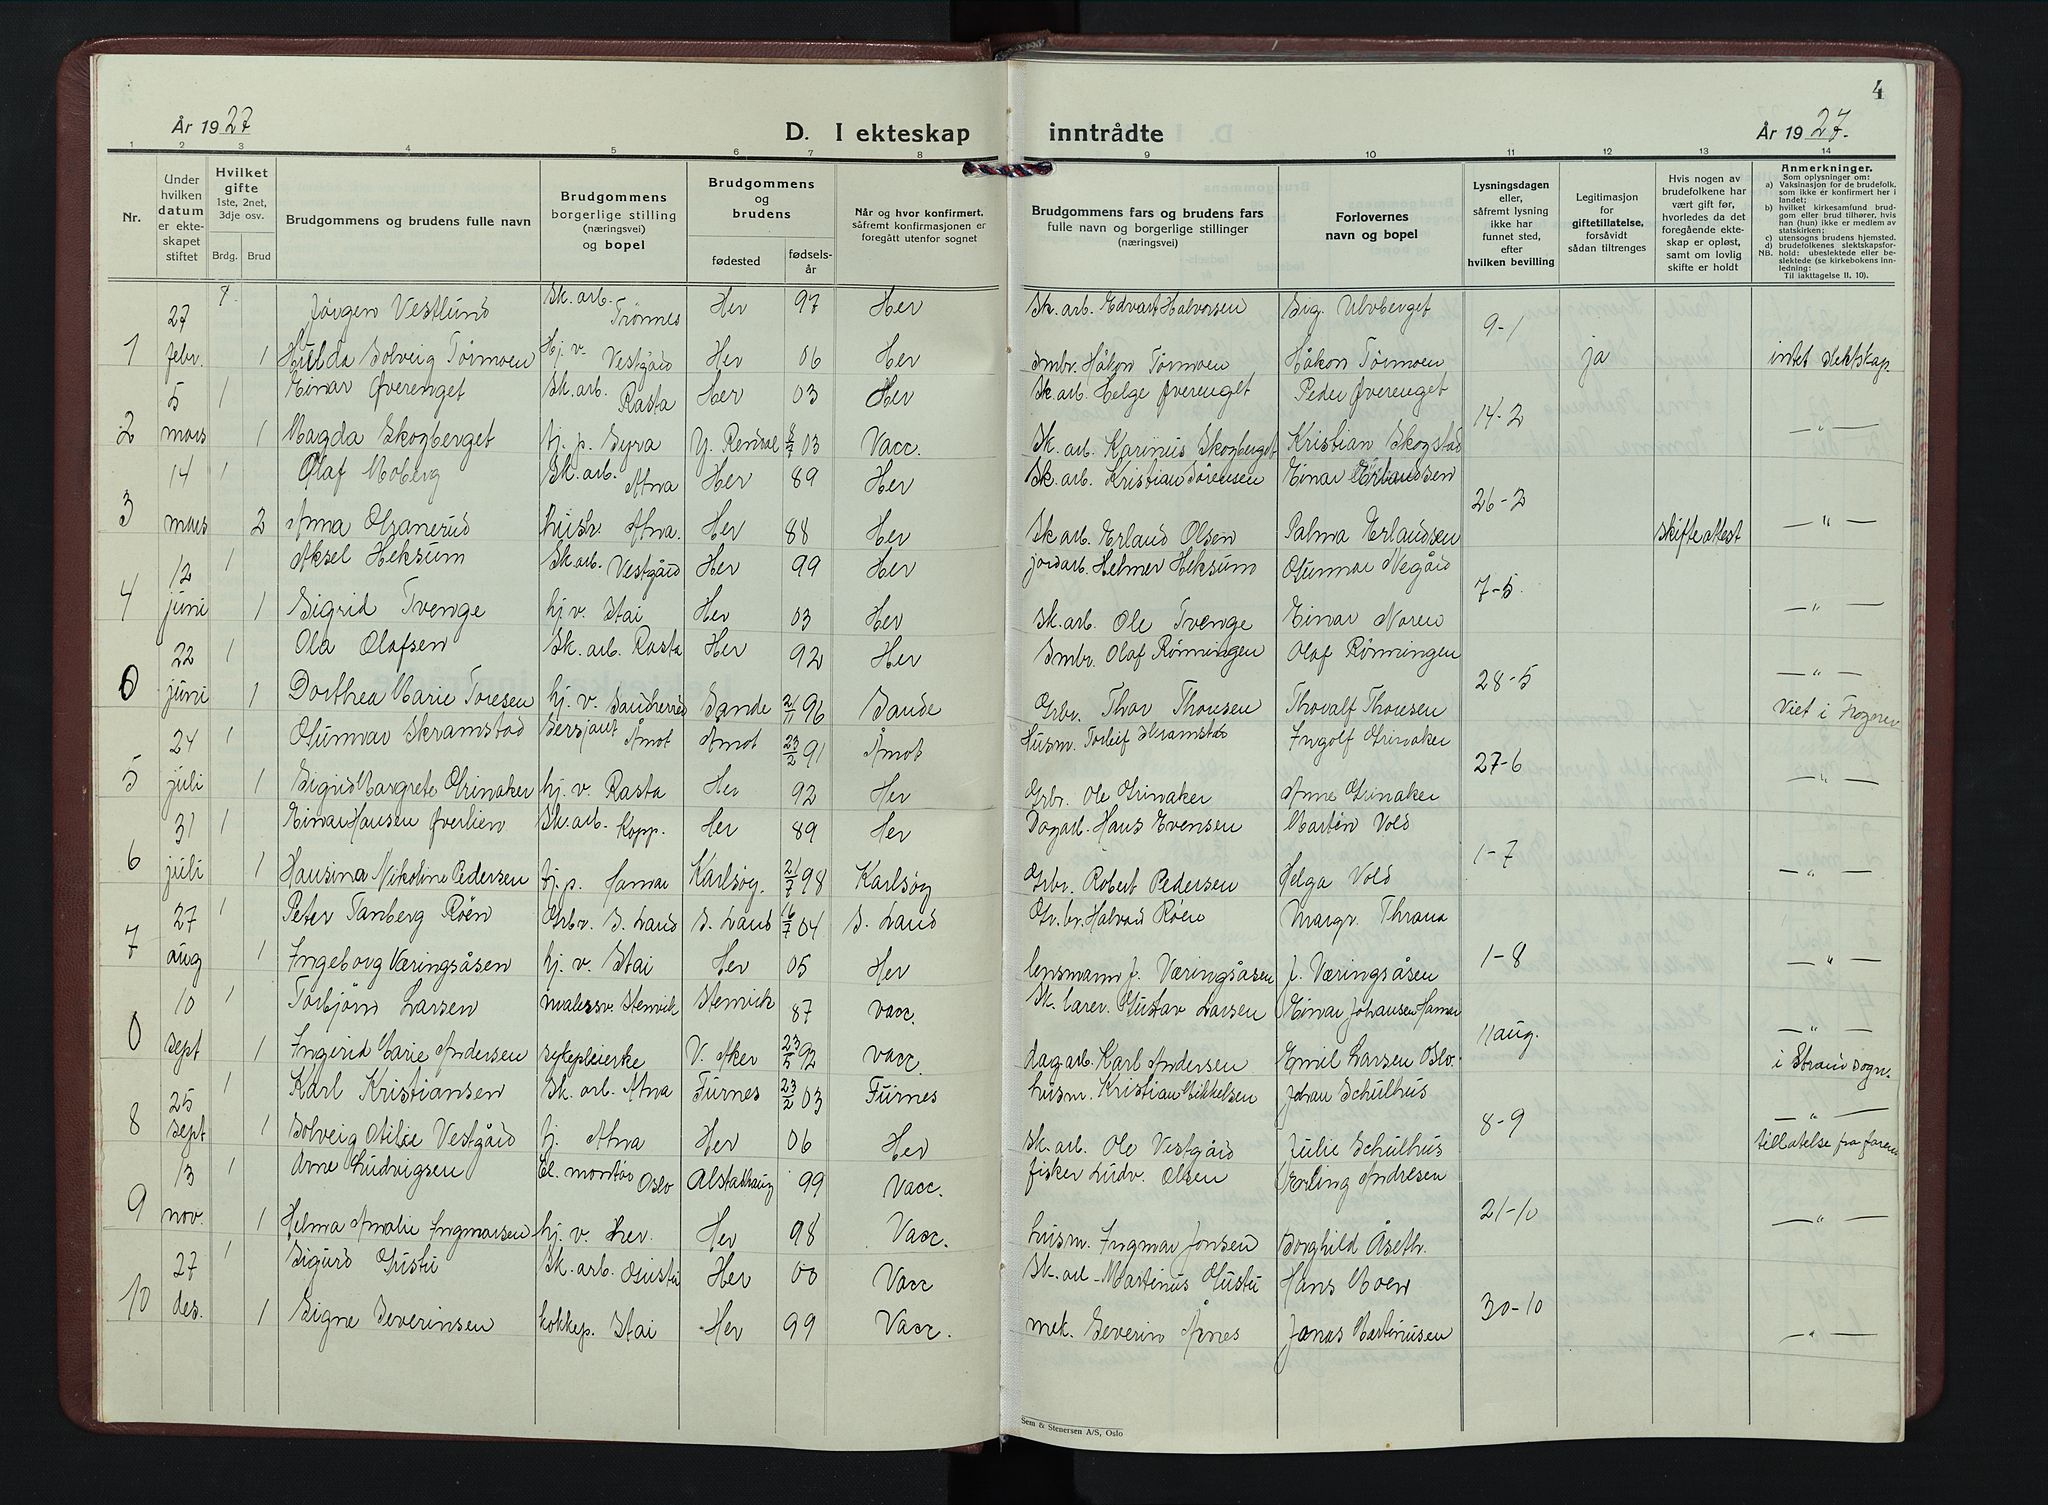 4
År 1927
D. I ekteskap
inntrådte
År 1927.
1 2 3 4 5 6 7 8 9 10 11 12 13 14
Nr.
Under hvilken datum er ekteskapet stiftet
Hvilket gifte 1ste, 2net, 3dje osv.
Brdg. Brud
Brudgommens og brudens fulle navn
Brudgommens borgerlige stilling (næringsvei) og bopel
Brudgommens og brudens
fødested
fødselsår
Når og hvor konfirmert, såfremt konfirmasjonen er foregått utenfor sognet
Brudgommens fars og brudens fars fulle navn og borgerlige stillinger (næringsvei)
Forlovernes navn og bopel
Lysningsdagen eller, såfremt lysning ikke har funnet sted, efter hvilken bevilling
Legitimasjon for giftetillatelse, forsåvidt sådan tiltrenges
Hvis nogen av brudefolkene har vært gift før, hvorledes da det foregående ekteskap er opløst, samt om lovlig skifte er holdt
Anmerkninger.
Som oplysninger om:
a) Vaksinasjon for de brudefolk, som ikke er konfirmert her i landet;
b) hvilket kirkesamfund brudgom eller brud tilhører, hvis han (hun) ikke er medlem av statskirken;
c) utensogns brudens hjemsted.
d) brudefolkenes slektskapsforhold: ubeslektede eller beslektede (se kirkebokens innledning:
NB. Til iakttagelse II, 10).
27 1 Jørgen Vestlund Sk. arb. Trønnes Her 97 Her Sk. arb. Edvart Halvorsen Sig. Ulvberget 9-1
1 febr. 1 Hulda Solveig Tørmoen Hj. v. Vestgård Her 06 Her Smbr. Håkon Tørmoen Håkon Tørmoen ja intet slektskap
5 1 Einar Øverenget Sk. arb. Rasta Her 03 Her Sk. arb. Helge Øverenget Peder Øverenget 14-2
2 mars 1 Magda Skogberget tj. p. Gyra Y. Rendal 03 Vacc. Sk. arb. Karinus Skogberget Kristian Skogstad —"—
14 1 Olaf Moberg Sk. arb. Atna Her 89 Her Sk. arb. Kristian Sørensen Einar Erlandsen 26-2
3 mars 2 Anna Granerud husbr. Atna. Her 88 Her Sk. arb. Erland Olsen Palma Erlandsen skifteattest —"—
12 1 Aksel Heksum Sk. arb. Vestgård Her 99 Her jordarb. Helmer Heksum Gunnar Negård 7-5.
4 juni 1 Sigrid Tvenge hj. v. Stai Her 03 Her Sk. arb. Ole Tvenge Einar Noren —"—
22 1 Ola Olafsen Sk. arb. Rasta Her 92 Her Smbr. Olaf Rønningen Olaf Rønningen 28-5 —"—
0 juni 1 Dorthea Marie Toresen hj. v. Sande 21/11 96 Sande Grbr. Thor Thoresen Thorvalf Thoresen Viet i Frogner
24 1 Gunnar Skramstad Sersjant Åmot Åmot 23/2 91 Åmot Husm. Torleif Skramstad Ingolf Grinaker 27-6
5 juli 1 Sigrid Margrete Grinaker hj. v. Rasta Her 92 Her Grbr. Ole Grinaker Anne Grinaker —"—
31 1 Einar Hansen Øverlien Sk. arb. Kopp. Her 89 Her Dagarb. Hans Evensen Martin Vold 1-7
6 juli 1 Hansina Nikoline Pedersen tj. p. Hamar Karlsøy. 21/7 98 Karlsøy Grbr. Robert Pedersen Helga Vold —"—
27 1 Peter Tanberg Røen Grbr. S. Land S. Land 16/7 04 S. Land Gr. br. Halvard Røen Margr. Thrana
7 aug 1 Ingeborg Væringsåsen hj. v. Stai Her 05 Her lensmann J. Væringsåsen J. Væringsåsen 1-8 —"—
10 1 Torbjørn Larsen malersv. Stenvik Stenvik 87 vacc. Sk. lærer. Gustav Larsen Einar Johansen Hamar 11 aug. —"—
0 sept 1 Ingerid Marie Andersen sykepleierske V. Aker 23/5 92 vacc. dagarb. Karl Andersen Emil Larsen Oslo. i Strand sogn.
25 1 Karl Kristiansen Sk. arb. Atna Furnes 23/2 03 Furnes husm. Kristian Mikkelsen Johan Schulhus 8-9 —"—
8 sept 1 Solveig Otilie Vestgård tj. Atna Her 06 Her Sk. arb. Ole Vestgård Julie Schulhus tillatelse fra faren
13 1 Arne Ludvigsen El. montør Oslo Alstadhaug 99 Vacc. fisker Ludv. Olsen Erling Andresen 21-10
9 nov. 1 Helma Amalie Ingmarsen hj. v. her. Her 98 Vacc. husm. Ingmar Jonsen Borghild Åseth. —"—
27 1 Sigurd Gustu Sk. arb. Gustu Her 00 Vacc Sk. arb. Martinus Gustu Hans Moen 30-10
10 des. 1 Signe Severinsen kokkep. Stai Her 99 Vacc. mek. Severin Jonas Martinusen —"—
Sem & Stenersen A/S, Oslo